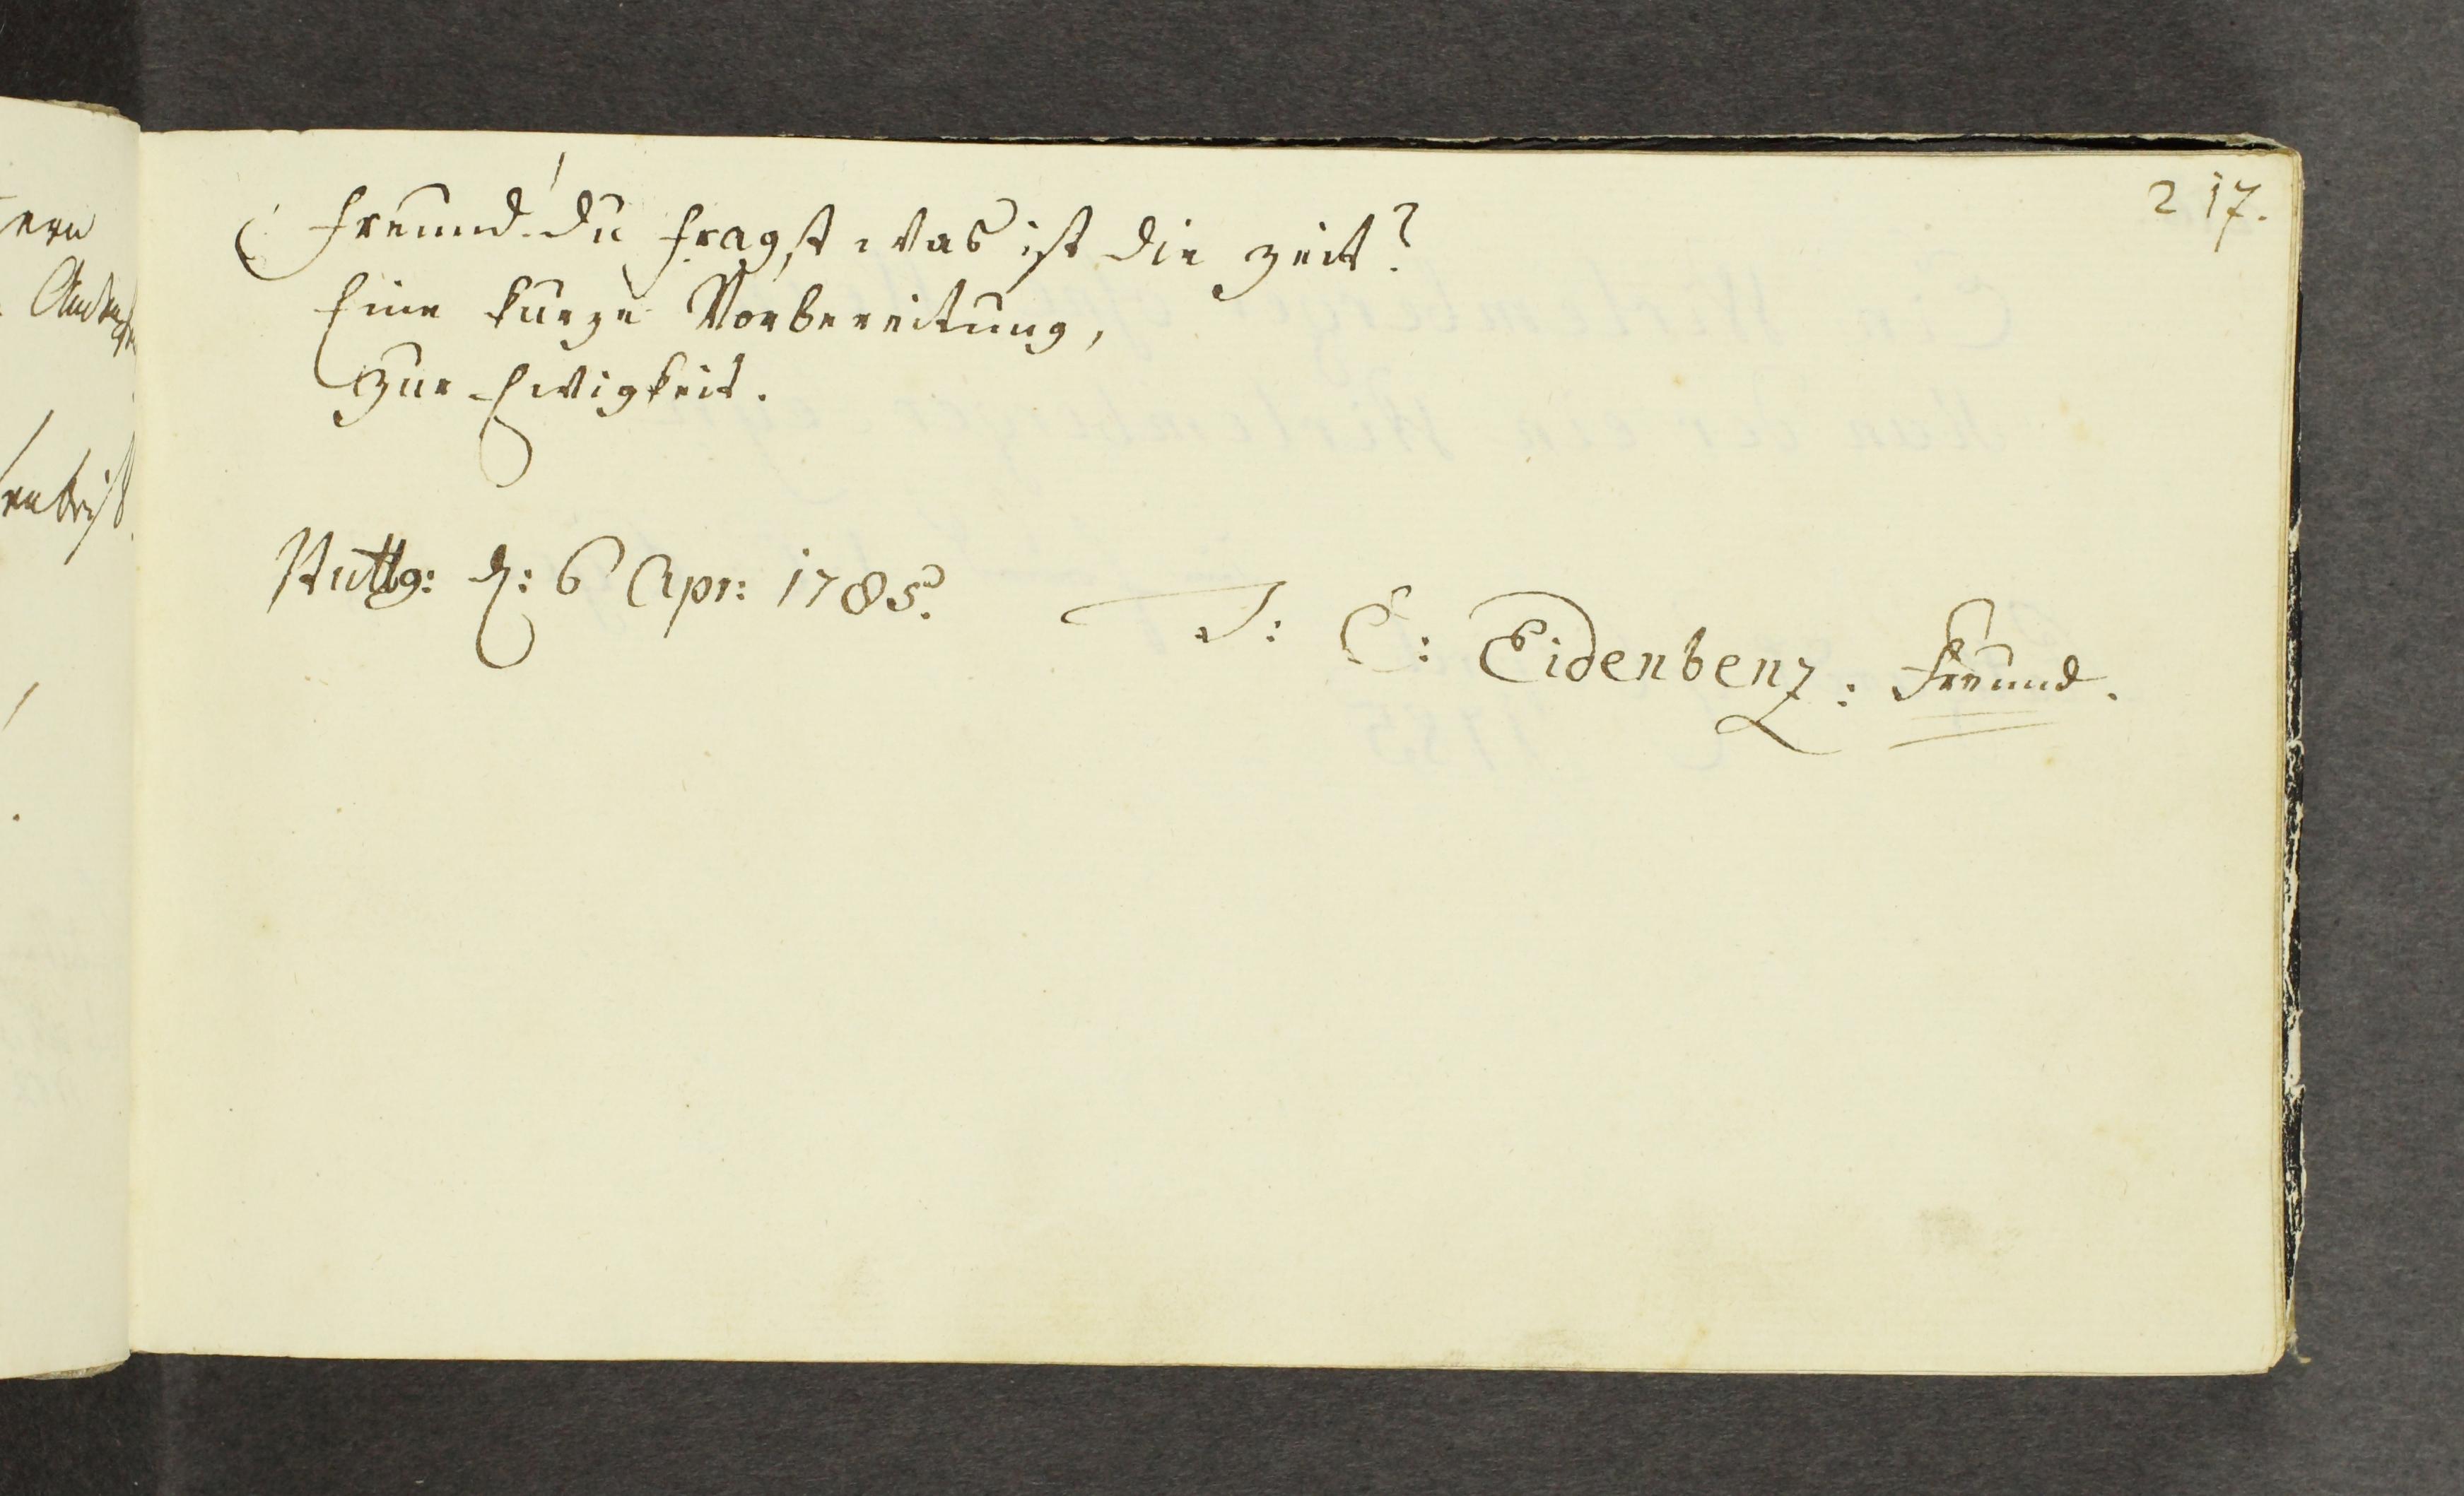 217.
Freund! du fragst was ist die Zeit?
Eine kurze Vorbereitung,
zur Ewigkeit.
Stuttg: d: 6 Apr: 1785.
J: C: Eidenbenz: Freund.